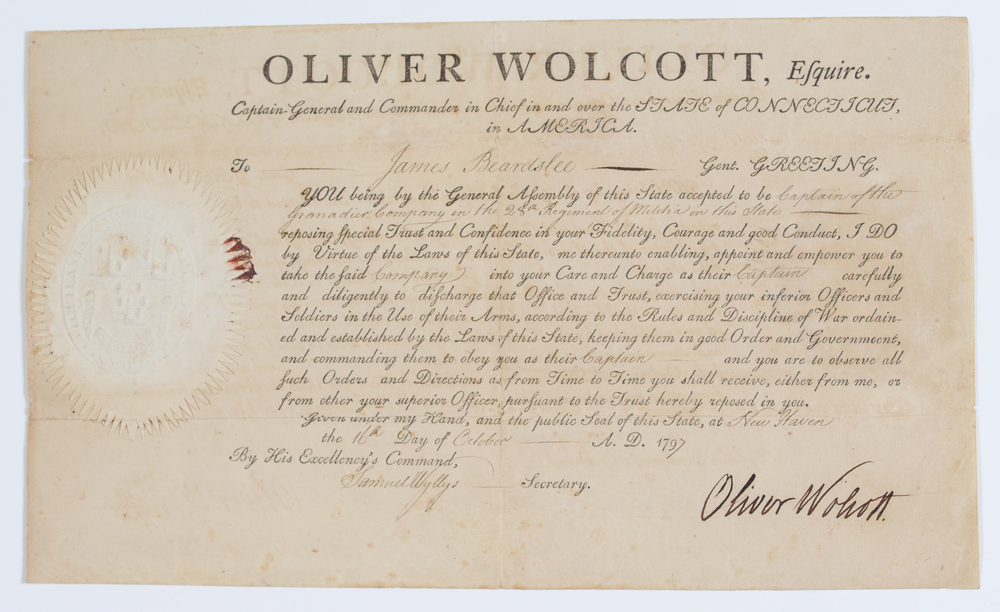 OLIVER WOLCOTT, Eſquire.
Captain-General and Commander in Chief in and over the STATE of CONNECTICUT,
in AMERICA.
To James Beardslee Gent. GREETING.
YOU being by the General Aſſembly of this State accepted to be Captain of the
Granadier Company in the 28th Regiment of Militia in this State
repoſing ſpecial Truſt and Confidence in your Fidelity, Courage and good Conduct, I DO
by Virtue of the Laws of this State, me thereunto enabling, appoint and empower you to
take the ſaid Company into your Care and Charge as their Captain carefully
and diligently to diſcharge that Office and Truſt, exerciſing your inferior Officers and
Soldiers in the Uſe of their Arms, according to the Rules and Diſcipline of War ordain-
ed and eſtabliſhed by the Laws of this State, keeping them in good Order and Government,
and commanding them to obey you as their Captain and you are to obſerve all
ſuch Orders and Directions as from Time to Time you shall receive, either from me, or
from other your superior Officer, purſuant to the Truſt hereby repoſed in you.
Given under my Hand, and the public Seal of this State, at New Haven
the 16th Day of October A. D. 1797
By His Excellency's Command,
Samuel Wyllys Secretary.
Oliver Wolcott.